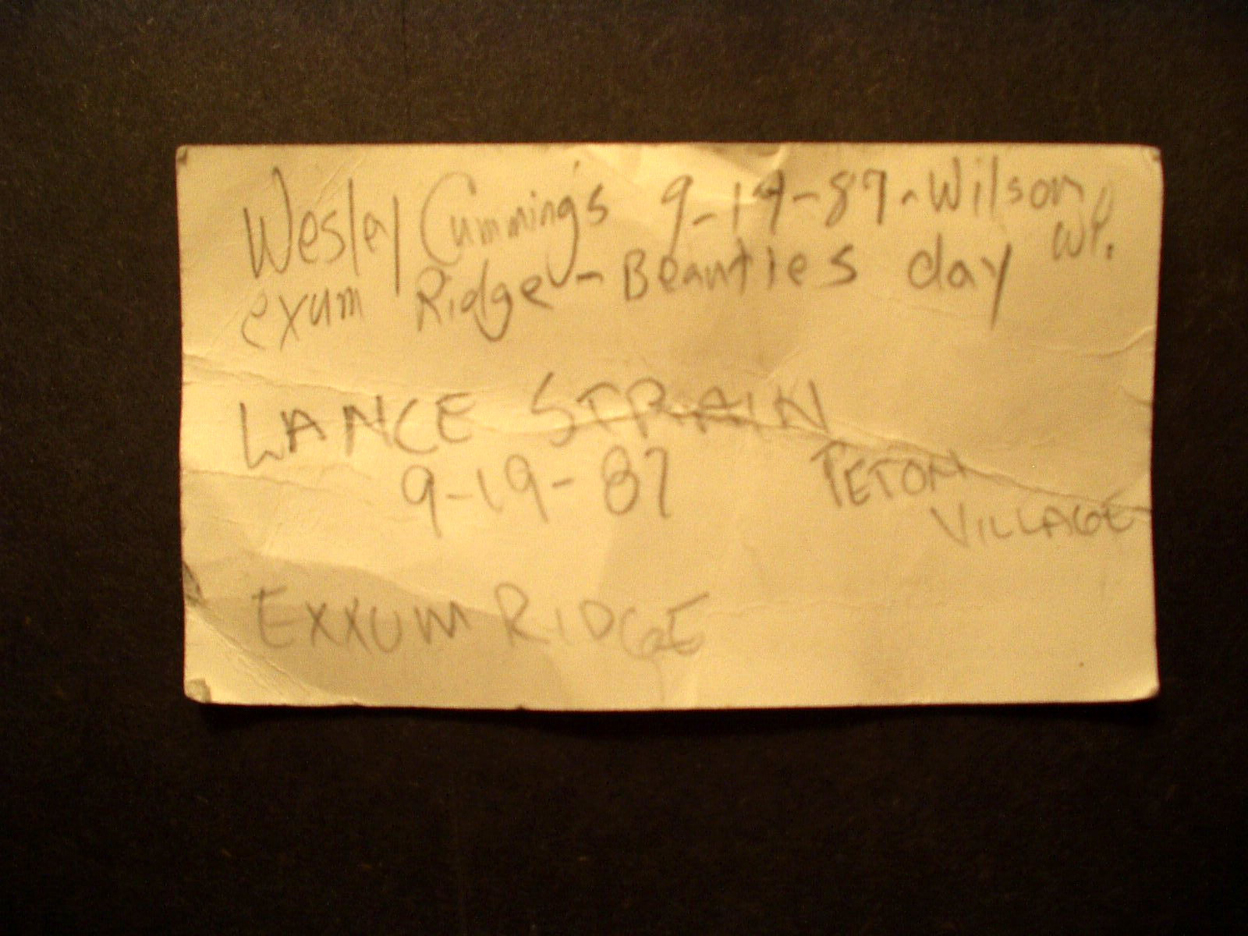 Wesley Cumming's 9-19-87-Wilson, WY.
exum Ridge - Beauties day
LANCE STRAIN
9-19-87 TETON
VILLAGE
EXXUM RIDGE